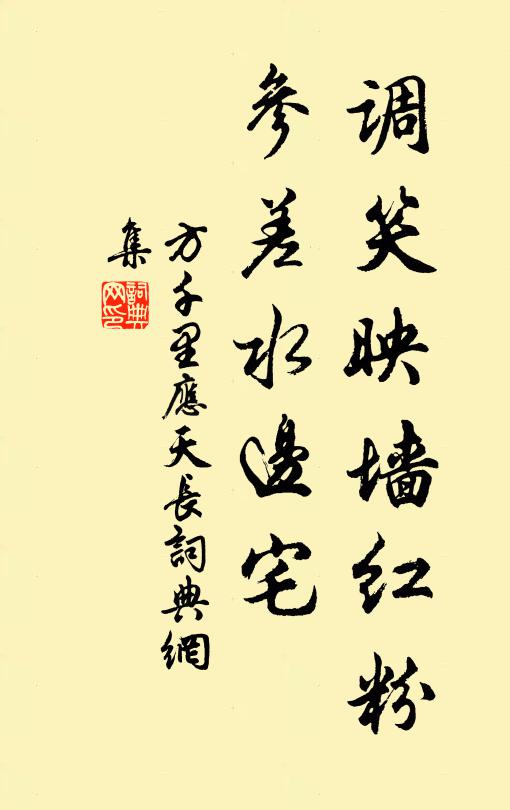 调笑映墙红粉
參差水邊宅
方千里應天長詞典網
集
詞典
网印